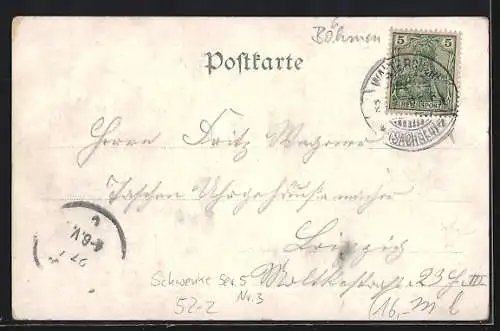 Böhmen
5 5
Postkarte
WALTERSDORF
(SACHSEN)
Herrn Fritz Wagner
Taschen Uhrgehäusemacher
Leipzig
Moltkestraße 23 III
5-6.V.
27
Schwenke Ser. 5
Nr. 3
52-2
(16,-